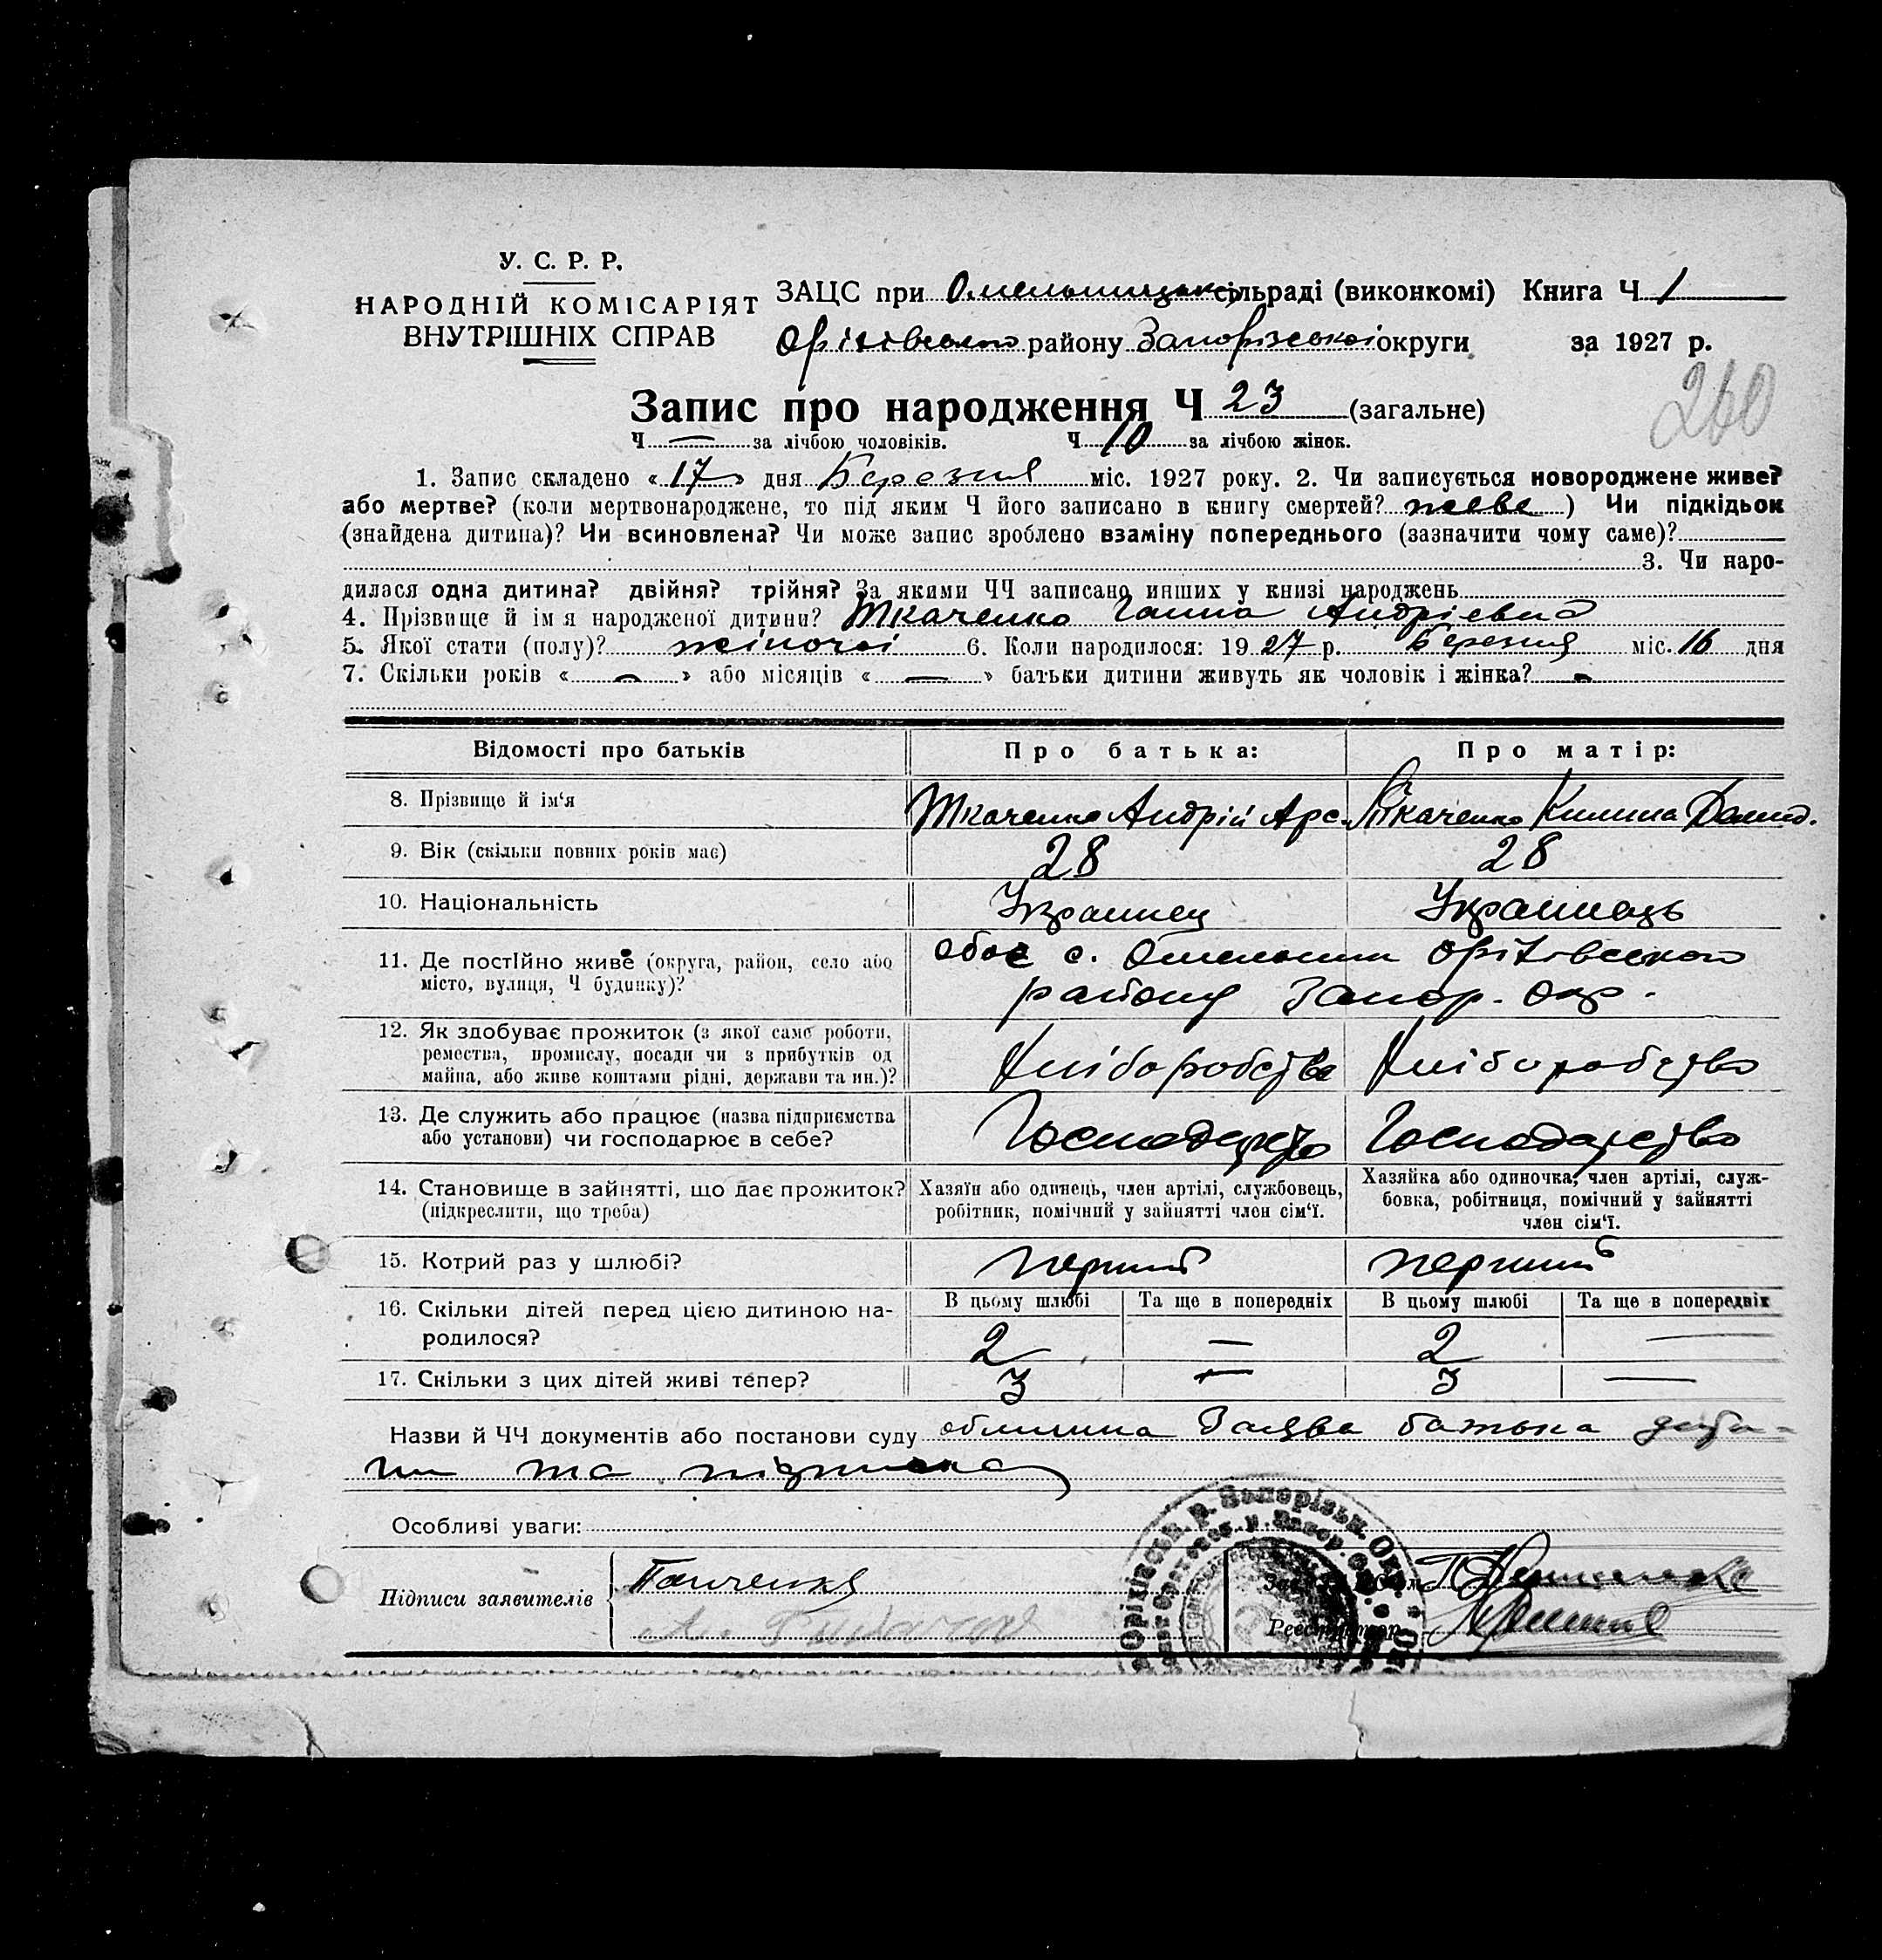 У. С. Р. Р.
НАРОДНІЙ КОМІСАРІЯТ
ВНУТРІШНІХ СПРАВ
ЗАЦС при Омельницькій сільраді (виконкомі) Книга Ч 1
Орiхівського району Запорізської округи за 1927 р.
260
Запис про народження Ч 23 (загальне)
Ч — за лічбою чоловіків. Ч 10 за лічбою жінок.
1. Запис складено « 17 » дня Березня міс. 1927 року. 2. Чи записується новороджене живе?
або мертве? (коли мертвонароджене, то під яким Ч його записано в книгу смертей? живе ) Чи підкідьок
(знайдена дитина)? Чи всиновлена? Чи може запис зроблено взаміну попереднього (зазначити чому саме)?
3. Чи наро-
дилася одна дитина? двійня? трійня? За якими ЧЧ записано инших у книзі народжень
4. Прізвище й ім я народженої дитини? Ткаченко Ганна Андріевна
5. Якої стати (полу)? жіночоі 6. Коли народилося: 1927 р. Березня міс. 16 дня
7. Скільки років « — » або місяців « — » батьки дитини живуть як чоловік і жінка? -
Відомості про батьків Про батька: Про матір:
8. Прізвище й ім‘я Ткаченко Андрій Арс. Ткаченко Килина Демид.
9. Вік (скільки повних років має) 28 28
10. Національність Украинец Украинець
11. Де постійно живе (округа, район, село або
місто, вулиця, Ч будинку)?
обоє с. Омельник Оріхівського
району Запор. Окр.
12. Як здобуває прожиток (з якої саме роботи,
ремества, промислу, посади чи з прибутків од
майна, або живе коштами рідні, держави та ин.)?
Хліборобство Хліборобство
13. Де служить або працює (назва підприємства
або установи) чи господарює в себе?
Господарство Господарство
14. Становище в зайнятті, що дає прожиток?
(підкреслити, що треба)
Хазяїн або одинець, член артілі, службовець,
робітник, помічний у зайнятті член сім‘ї.
Хазяйка або одиночка, член артілі, служ-
бовка, робітниця, помічний у зайнятті
член сім‘ї.
15. Котрий раз у шлюбі? перший перший
16. Скільки дітей перед цією дитиною на-
родилося?
В цьому шлюбі Та ще в попередніх В цьому шлюбі Та ще в попередніх
2 — 2 —
17. Скільки з цих дітей живі тепер? 3 — 3 —
Назви й ЧЧ документів або постанови суду Заява батька
та
Особливі уваги:
Підписи заявителів
Реєстратор